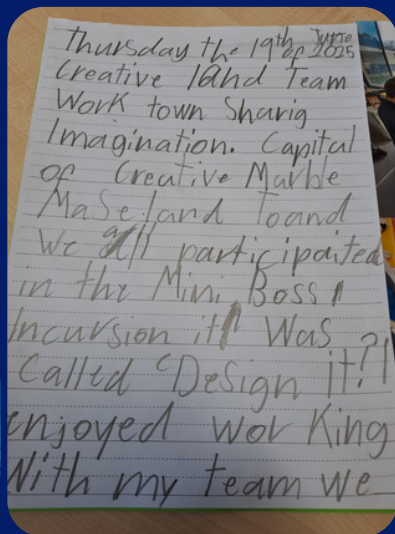 Thursday the 19th of June 2025
Creative land Team
Work town Sharig
Imagination. Capital
of Creative Marble
MaSe land Toand
We all participated
in the Mini Boss
Incursion it Was
Called "Design it?!
enjoyed working
With my team we